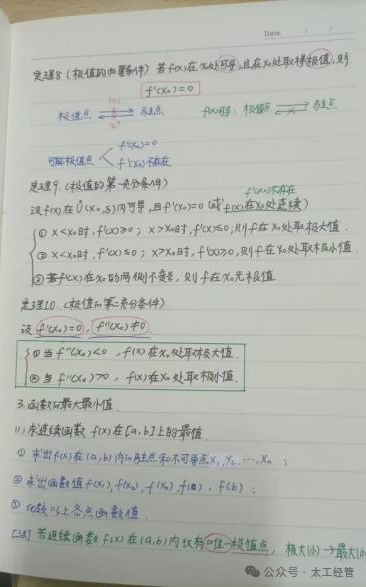 Date.
定理8（极值的必要条件）若f(x)在x₀处可导,且在x₀处取得极值,则
f'(x₀)=0
极值点 驻点 f(x)可导: 极值点 驻点
可能极值点 f'(x₀)=0
f'(x₀)不存在
定理9（极值的第一充分条件）
f'(x₀)不存在
设f(x)在Ů(x₀,δ)内可导,且f'(x₀)=0 (或f(x)在x₀处连续)
① x<x₀时,f'(x)≥0; x>x₀时,f'(x)≤0,则f在x₀处取极大值.
② x<x₀时,f'(x)≤0; x>x₀时,f'(x)≥0,则f在x₀处取极小值
③ 若f'(x)在x₀的两侧不变号,则f在x₀无极值.
定理10.（极值的第二充分条件）
设f'(x₀)=0,f''(x₀)≠0
① 当f''(x₀)<0,f(x)在x₀处取极大值.
② 当f''(x₀)>0,f(x)在x₀处取极小值.
3.函数的最大最小值.
(1)求连续函数f(x)在[a,b]上的最值.
① 求出f(x)在(a,b)内的驻点和不可导点x₁,x₂,…,xₙ;
② 求出函数值f(x₁),f(x₂),f(xₙ),f(a),f(b);
③ 比较以上各点函数值.
[注]若连续函数f(x)在(a,b)内仅有唯一极值点, 极大(小)→最大(小)
公众号·太工经管